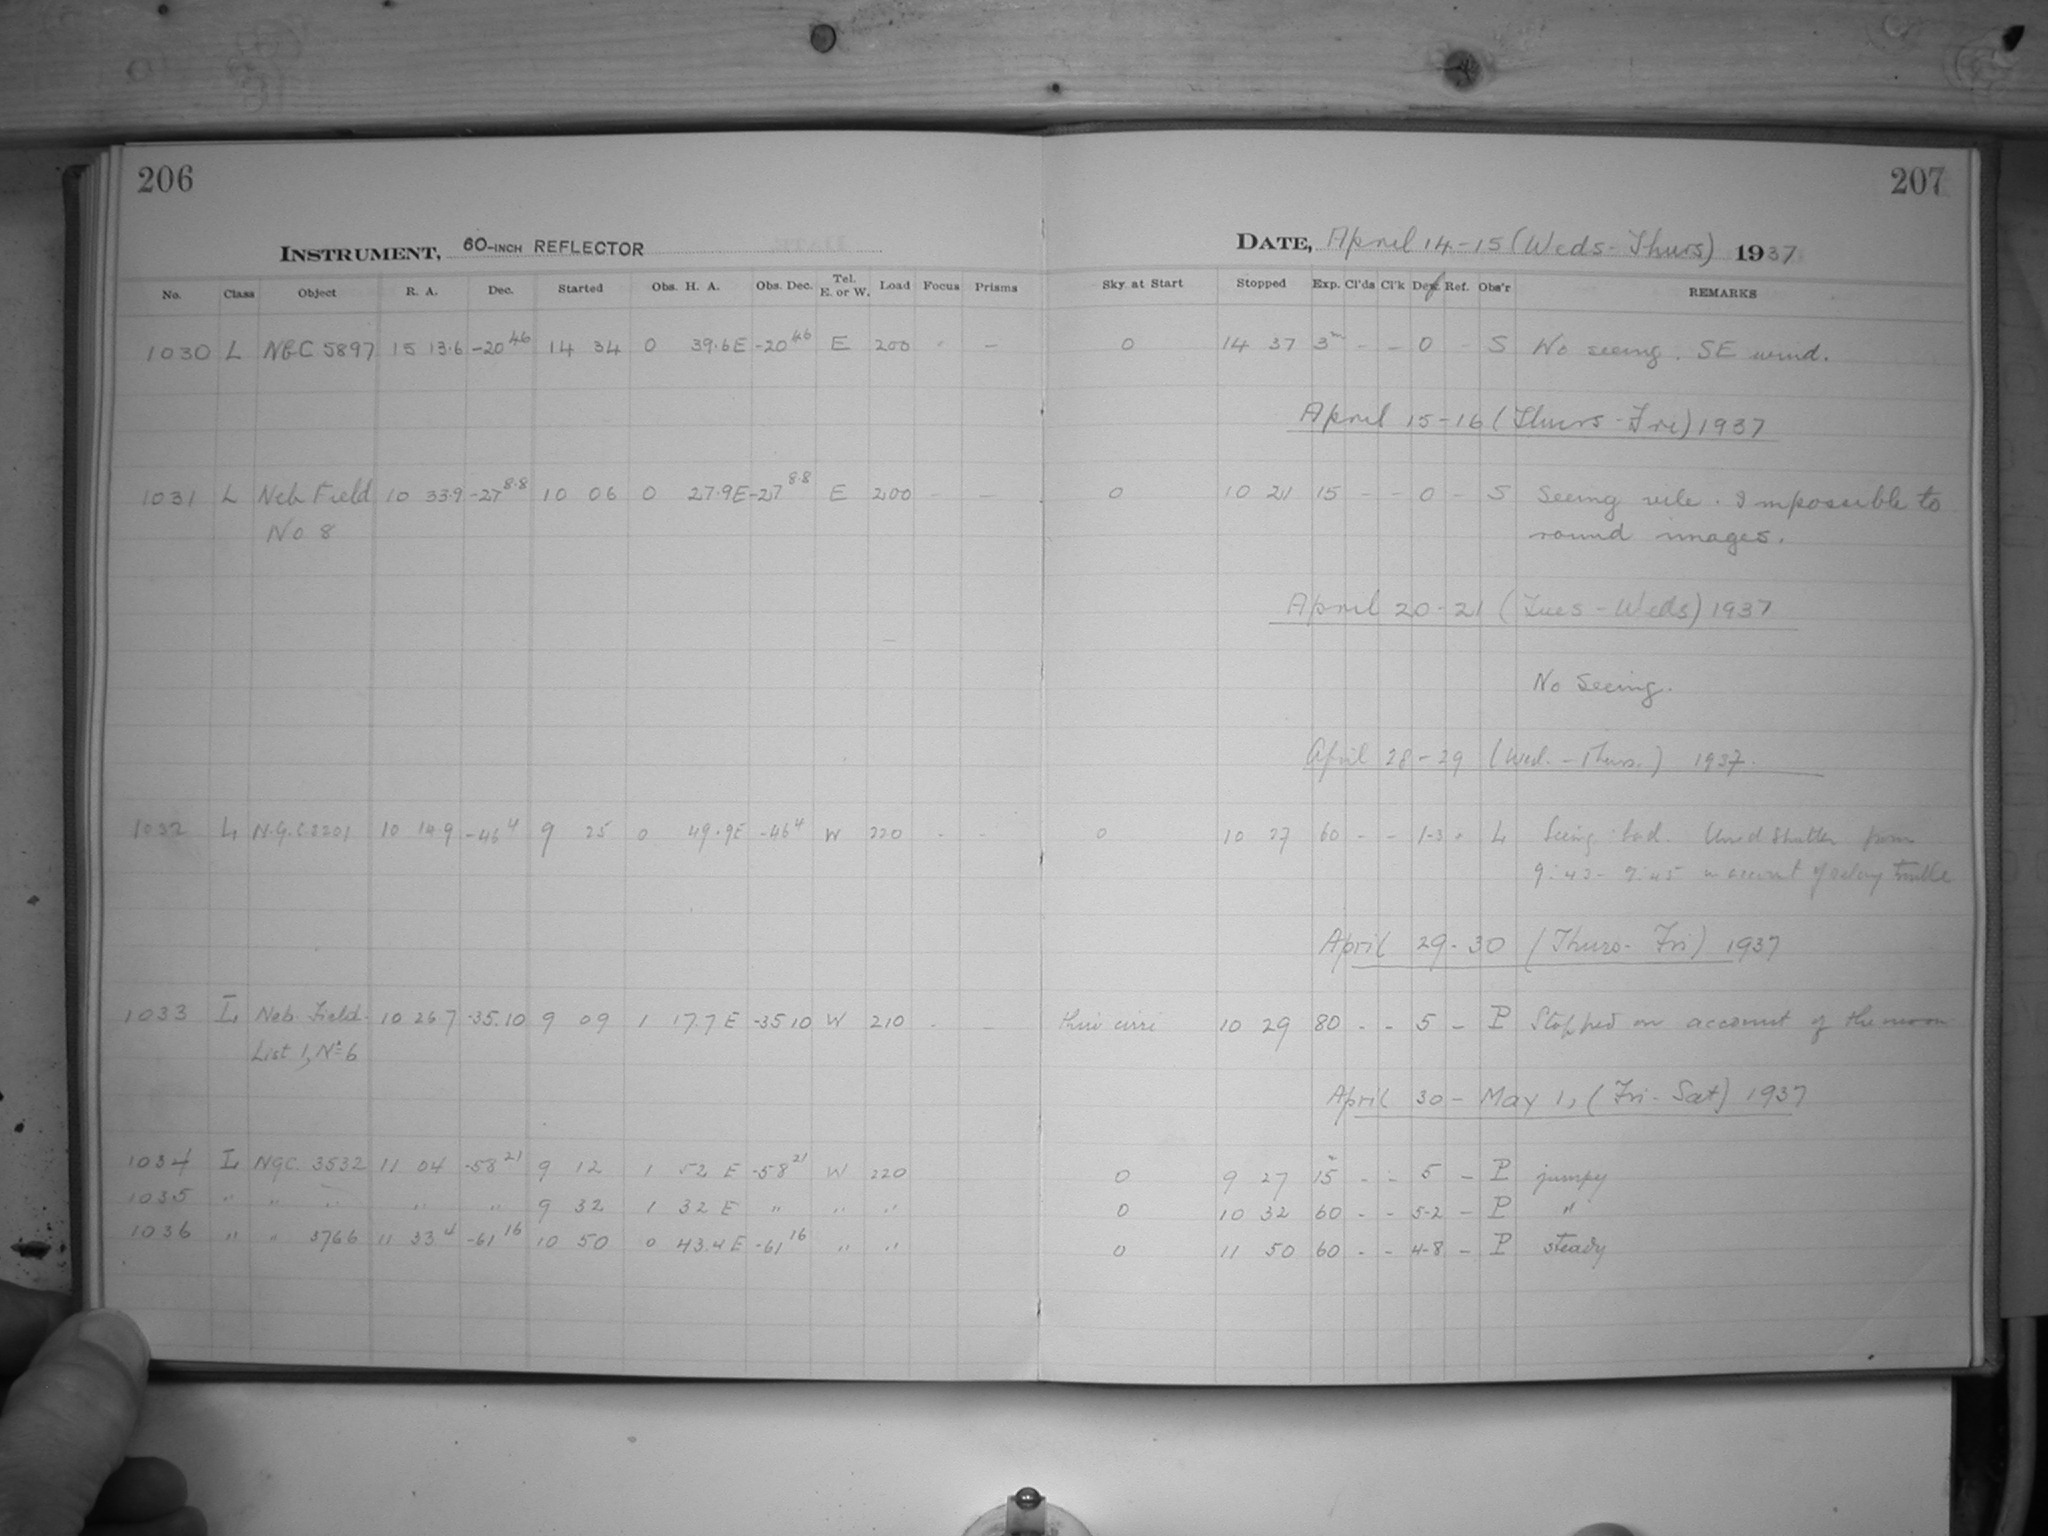 206
207
INSTRUMENT, 60-INCH REFLECTOR
DATE, April 14-15 (Weds-Thurs) 1937
No. Class Object R. A. Dec. Started Obs. H. A. Obs. Dec. Tel. E. or W. Load Focus Prisms Sky at Start Stopped Exp. Cl'ds Cl'k Def. Ref. Obs'r REMARKS
1030 L NGC 5897 15 13.6 -20 46 14 34 0 39.6E -20 46 E 200 - - 0 14 37 3m - - 0 - S No seeing. SE wind.
April 15-16 (Thurs-Fri) 1937
1031 L Neb Field 10 33.9 -27 8.8 10 06 0 27.9E -27 8.8 E 200 - - 0 10 21 15 - - 0 - S Seeing vile. Impossible to
No 8 round images.
April 20-21 (Tues-Weds) 1937
No Seeing.
April 28-29 (Wed.-Thurs.) 1937.
1032 L N.G.C 10 14.9 -46 4 9 25 0 49.9E -46 4 W 220 - - 0 10 27 60 - - 1-3 - L Seeing bad. Used shutter from
9:43- on account of relay trouble
April 29-30 (Thurs-Fri) 1937
1033 L Neb. Field- 10 26.7 -35.10 9 09 1 17.7 E -35 10 W 210 - - thin cirri 10 29 80 - - 5 - P Stopped on account of the moon
List 1, No 6
April 30-May 1, (Fri-Sat) 1937
1034 L NGC 3532 11 04 -58 21 9 12 1 52 E -58 21 W 220 0 9 27 15m - - 5 - P jumpy
1035 " " " " " 9 32 1 32 E " " " 0 10 32 60 - - 5-2 - P "
1036 " " 3766 11 33 4 -61 16 10 50 0 43.4 E -61 16 " " 0 11 50 60 - - 4-8 - P steady